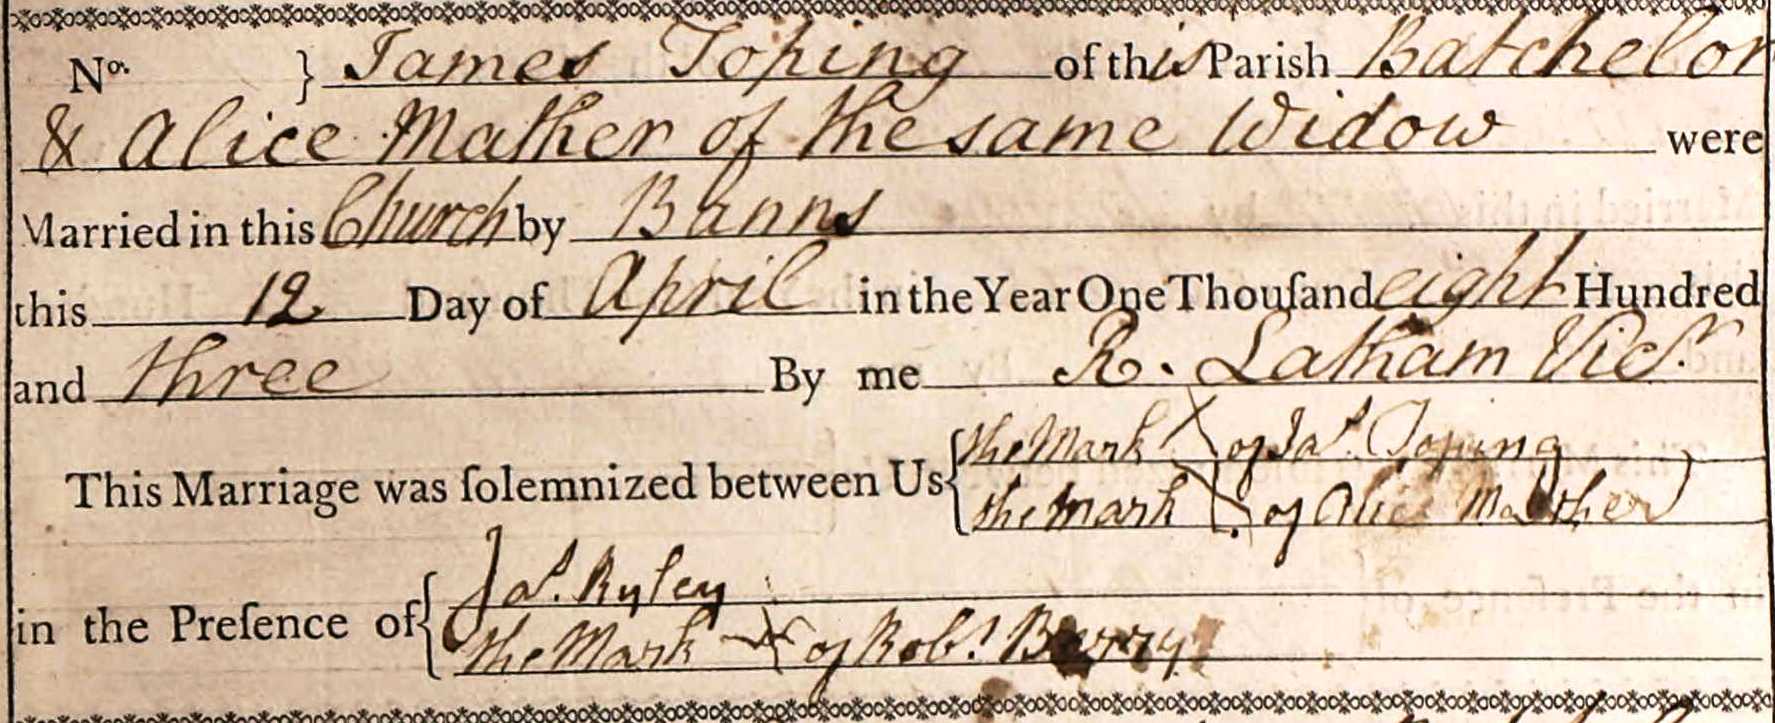 No. } James Toping of this Parish Batchelor
& Alice Mather of the same Widow were
Married in this Church by Banns
this 12 Day of April in the Year One Thouſand eight Hundred
and three By me R. Latham Vicr.
This Marriage was ſolemnized between Us { the Mark X of Jas. Toping
the mark X of Alice Mather
in the Preſence of { Jas. Ryley
the Mark X of Robt. Berry